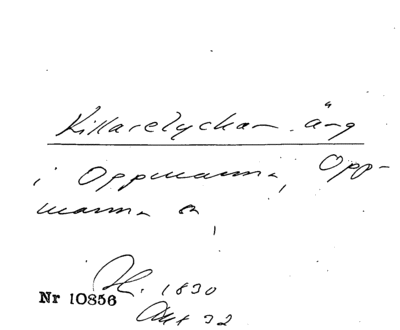 Killarelyckan. äng
i Oppmanna, Opp-
manna sn,
H. 1830
Nr 10856
Akt 32